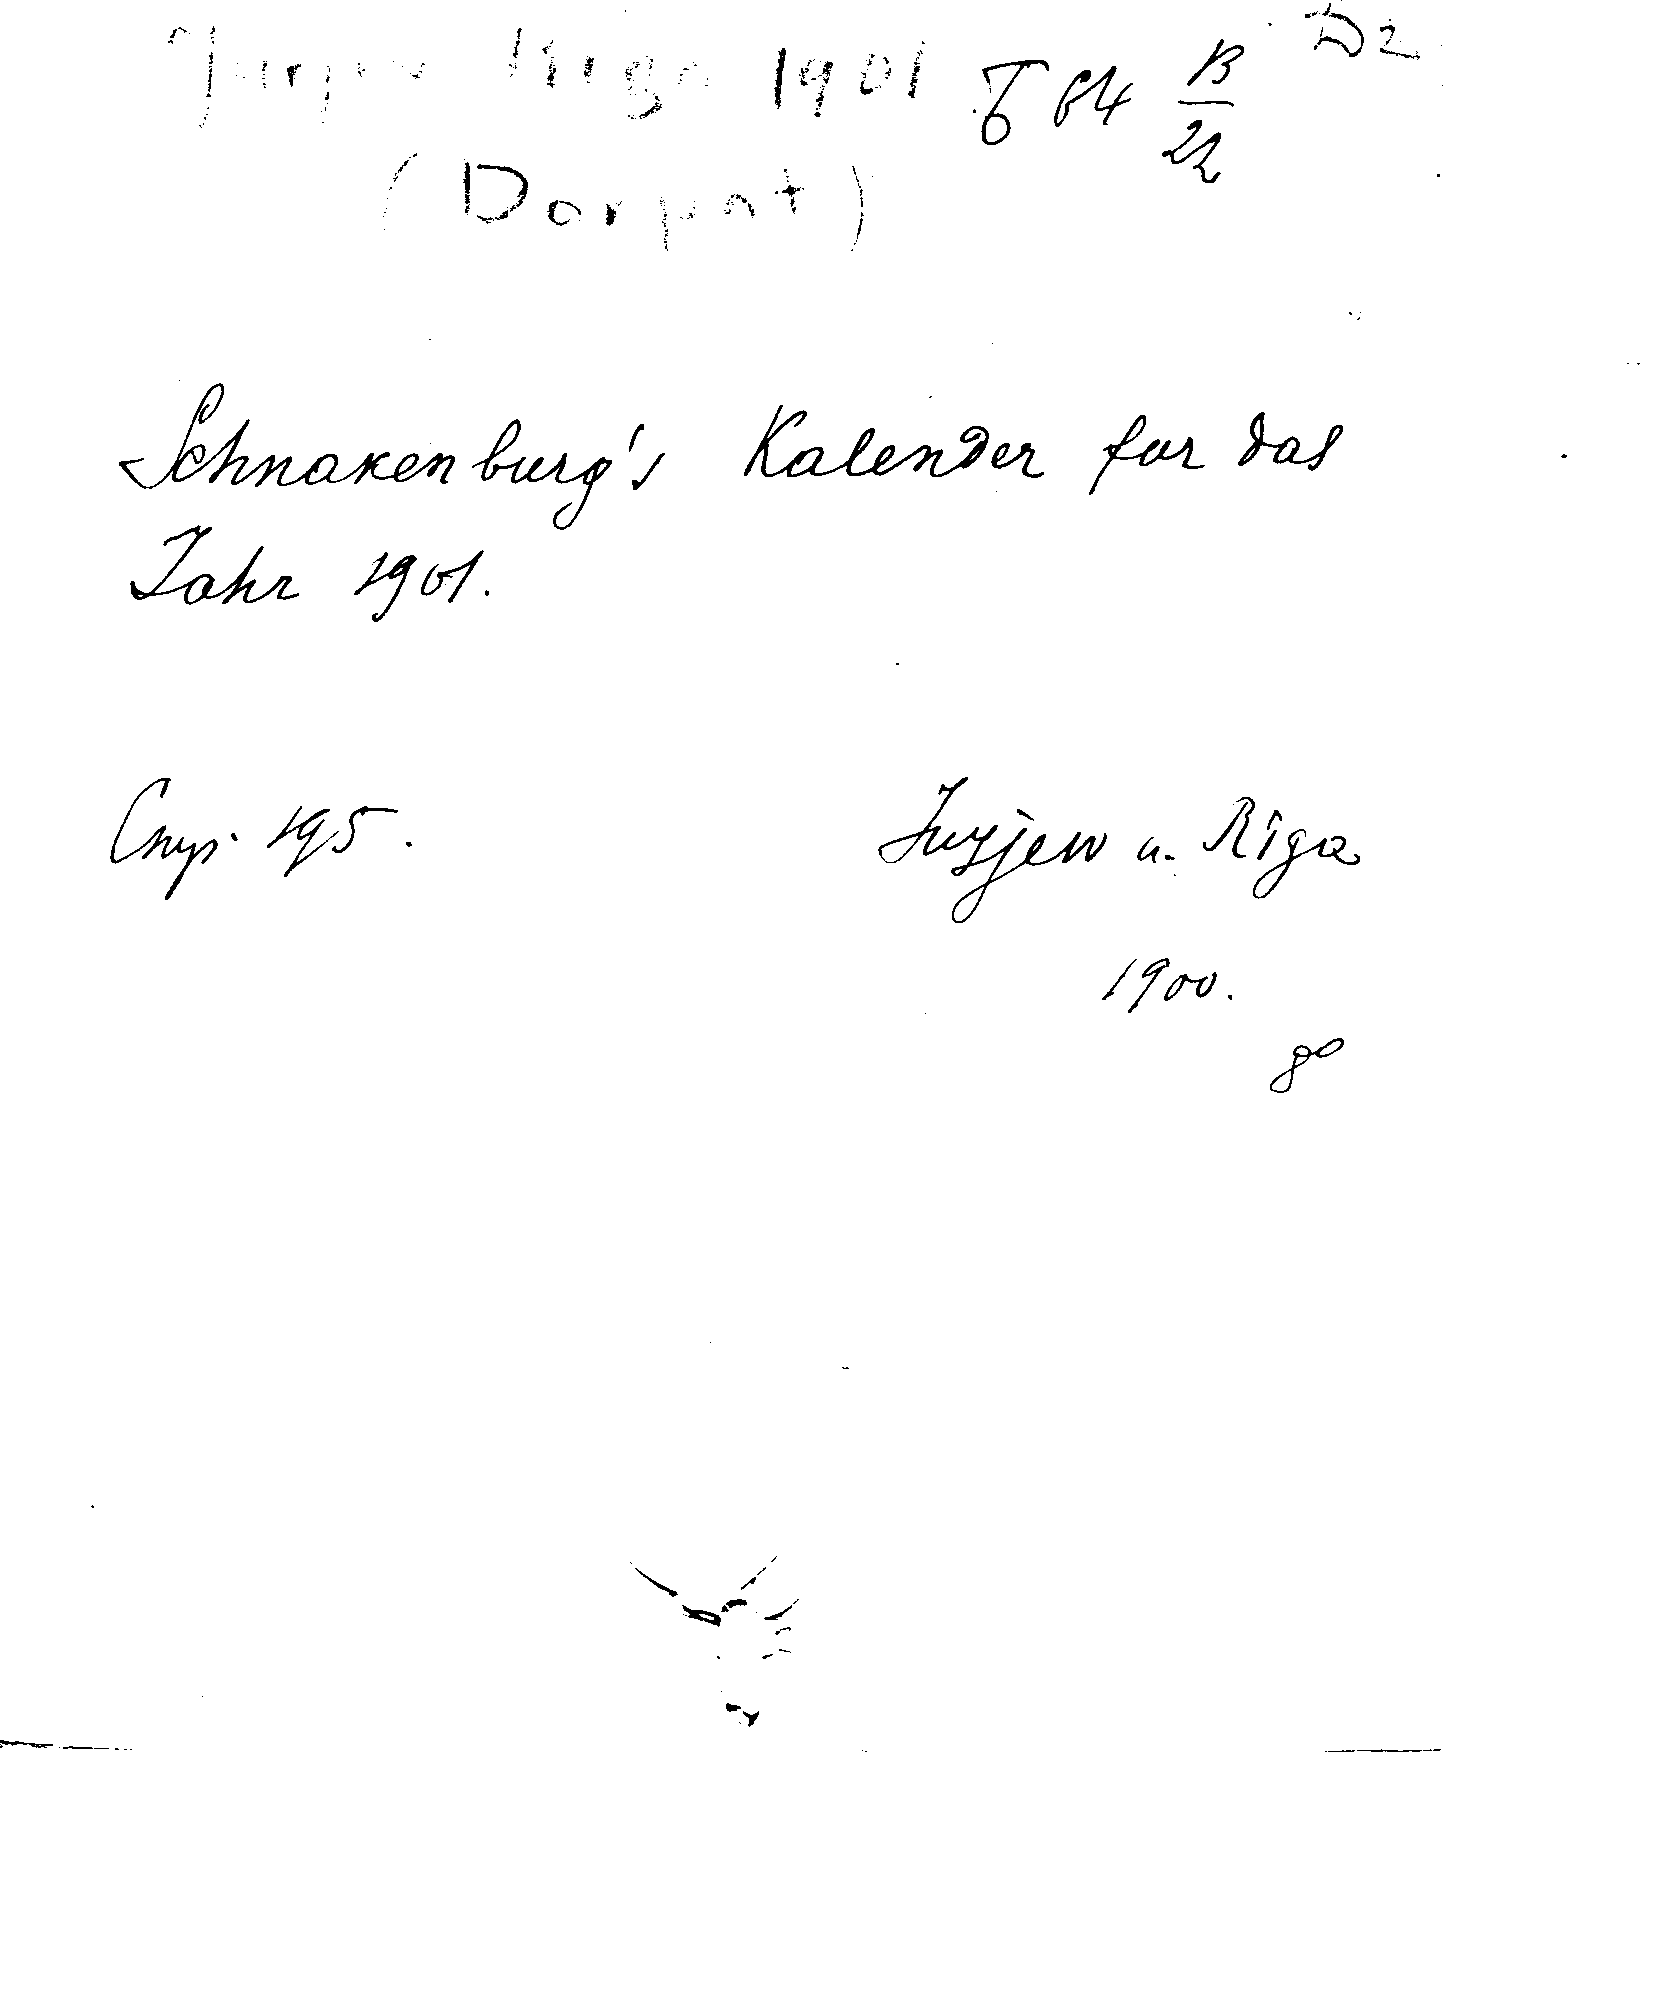 Jurjew Riga 1901
(Dorpat)
Б 64 В/22 D2
Schnakenburg's Kalender fur das
Jahr 1901.
Стр. 195. Jurjew u. Riga
1900.
8°